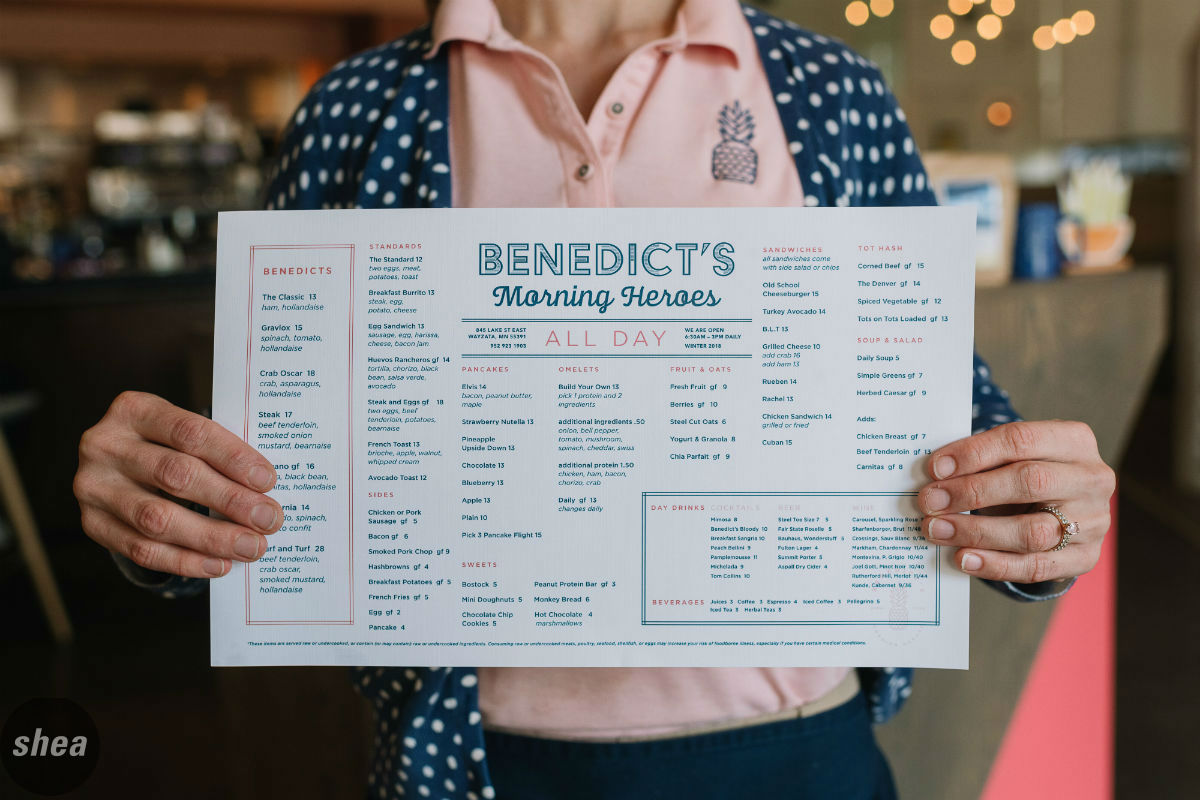 BENEDICTS
The Classic 13
ham, hollandaise
Gravlox 15
spinach, tomato,
hollandaise
Crab Oscar 18
crab, asparagus,
hollandaise
Steak 17
beef tenderloin,
smoked onion
mustard, bearnaise
gf 16
black bean,
hollandaise
14
spinach,
confit
and Turf 28
beef tenderloin,
crab oscar,
smoked mustard,
hollandaise
STANDARDS
The Standard 12
two eggs, meat,
potatoes, toast
Breakfast Burrito 13
steak, egg,
potato, cheese
Egg Sandwich 13
sausage, egg, harissa,
cheese, bacon jam
Huevos Rancheros gf 14
tortilla, chorizo, black
bean, salsa verde,
avocado
Steak and Eggs gf 18
two eggs, beef
tenderloin, potatoes,
bearnaise
French Toast 13
brioche, apple, walnut,
whipped cream
Avocado Toast 12
SIDES
Chicken or Pork
Sausage gf 5
Bacon gf 6
Smoked Pork Chop gf 9
Hashbrowns gf 4
Breakfast Potatoes gf 5
French Fries gf 5
Egg gf 2
Pancake 4
BENEDICT'S
Morning Heroes
845 LAKE ST EAST
WAYZATA, MN 55391
952 923 1903
ALL DAY
WE ARE OPEN
6:30AM – 3PM DAILY
WINTER 2018
PANCAKES
Elvis 14
bacon, peanut butter,
maple
Strawberry Nutella 13
Pineapple
Upside Down 13
Chocolate 13
Blueberry 13
Apple 13
Plain 10
Pick 3 Pancake Flight 15
OMELETS
Build Your Own 13
pick 1 protein and 2
ingredients
additional ingredients .50
onion, bell pepper,
tomato, mushroom,
spinach, cheddar, swiss
additional protein 1.50
chicken, ham, bacon,
chorizo, crab
Daily gf 13
changes daily
FRUIT & OATS
Fresh Fruit gf 9
Berries gf 10
Steel Cut Oats 6
Yogurt & Granola 8
Chia Parfait gf 9
SWEETS
Bostock 5
Mini Doughnuts 5
Chocolate Chip
Cookies 5
Peanut Protein Bar gf 3
Monkey Bread 6
Hot Chocolate 4
marshmallows
SANDWICHES
all sandwiches come
with side salad or chips
Old School
Cheeseburger 15
Turkey Avocado 14
B.L.T 13
Grilled Cheese 10
add crab 16
add ham 13
Rueben 14
Rachel 13
Chicken Sandwich 14
grilled or fried
Cuban 15
TOT HASH
Corned Beef gf 15
The Denver gf 14
Spiced Vegetable gf 12
Tots on Tots Loaded gf 13
SOUP & SALAD
Daily Soup 5
Simple Greens gf 7
Herbed Caesar gf 9
Adds:
Chicken Breast gf 7
Beef Tenderloin gf 13
Carnitas gf 8
DAY DRINKS
COCKTAILS
Mimosa 8
Benedict's Bloody 10
Breakfast Sangria 10
Peach Bellini 9
Pamplemousse 11
Michelada 9
Tom Collins 10
BEER
Steel Toe Size 7 5
Fair State Roselle 5
Bauhaus, Wonderstuff 5
Fulton Lager 4
Summit Porter 5
Aspall Dry Cider 4
WINE
Carousel, Sparkling Rose
Sharfenborger, Brut 11/48
Crossings, Sauv Blanc 9/36
Markham, Chardonnay 11/44
Montevina, P. Grigio 10/40
Joel Gott, Pinot Noir 10/40
Rutherford Hill, Merlot 11/44
Kunde, Cabernet 9/36
BEVERAGES
Juices 3 Coffee 3 Espresso 4 Iced Coffee 3 Pellegrino 5
Iced Tea 3 Herbal Teas 3
*These items are served raw or undercooked, or contain (or may contain) raw or undercooked ingredients. Consuming raw or undercooked meats, poultry, seafood, shellfish, or eggs may increase your risk of foodborne illness, especially if you have certain medical conditions.
shea